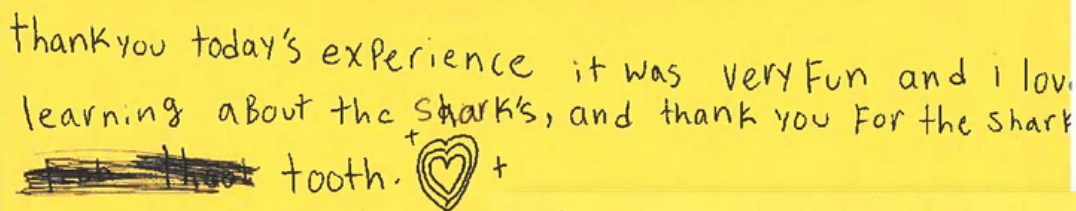 thank you today's experience it was very Fun and i lov
learning about the shark's, and thank you For the shark
tooth.